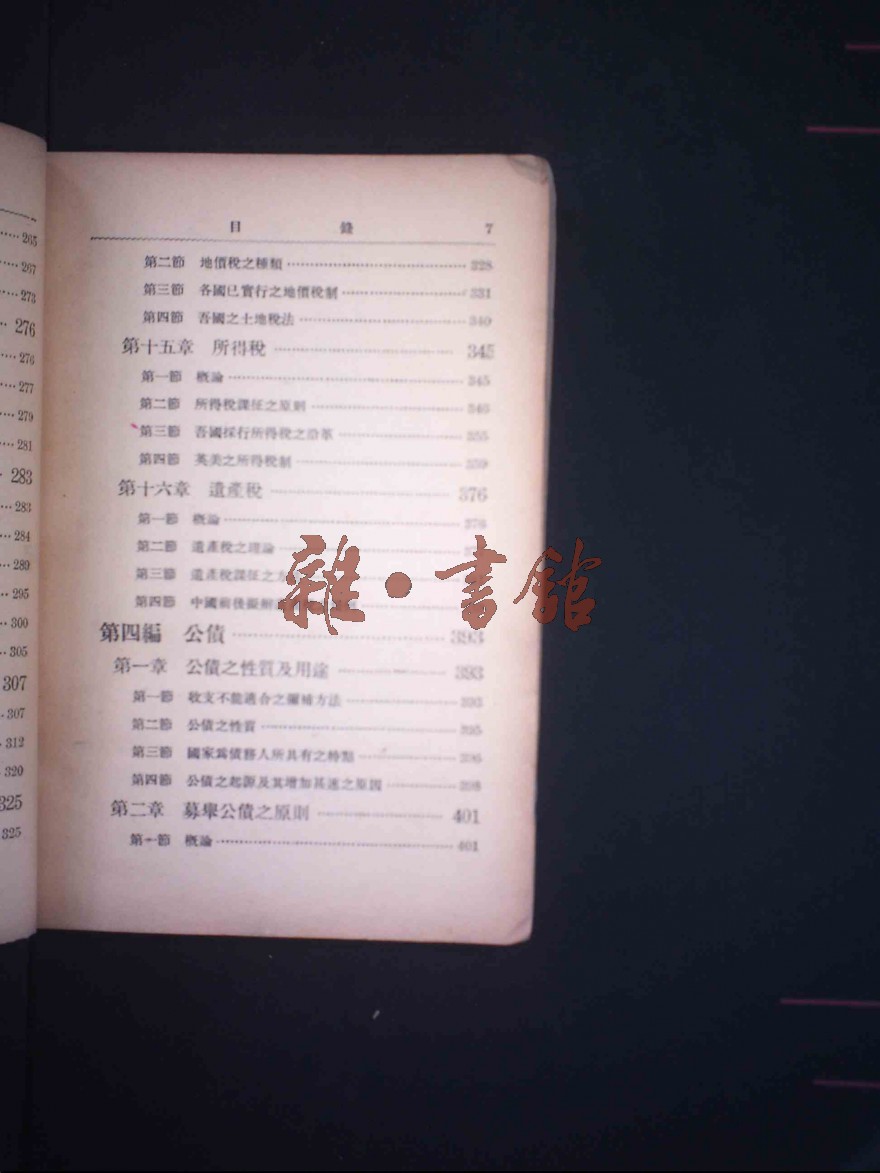 265
267
273
276
276
277
279
281
283
283
284
289
295
300
305
307
307
312
320
325
325
目 錄 7
第二節 地價稅之種類 328
第三節 各國已實行之地價稅制 331
第四節 吾國之土地稅法 340
第十五章 所得稅 345
第一節 概論 345
第二節 所得稅課征之原則 346
第三節 吾國採行所得稅之沿革 355
第四節 英美之所得稅制 359
第十六章 遺產稅 376
第一節 概論 376
第二節 遺產稅之理論
第三節 遺產稅課征之方
第四節 中國前後擬辦
第四編 公債 393
第一章 公債之性質及用途 393
第一節 收支不能適合之彌補方法 393
第二節 公債之性質 395
第三節 國家爲債務人所具有之特點 396
第四節 公債之起源及其增加甚速之原因 398
第二章 募舉公債之原則 401
第一節 概論 401
雜·書館